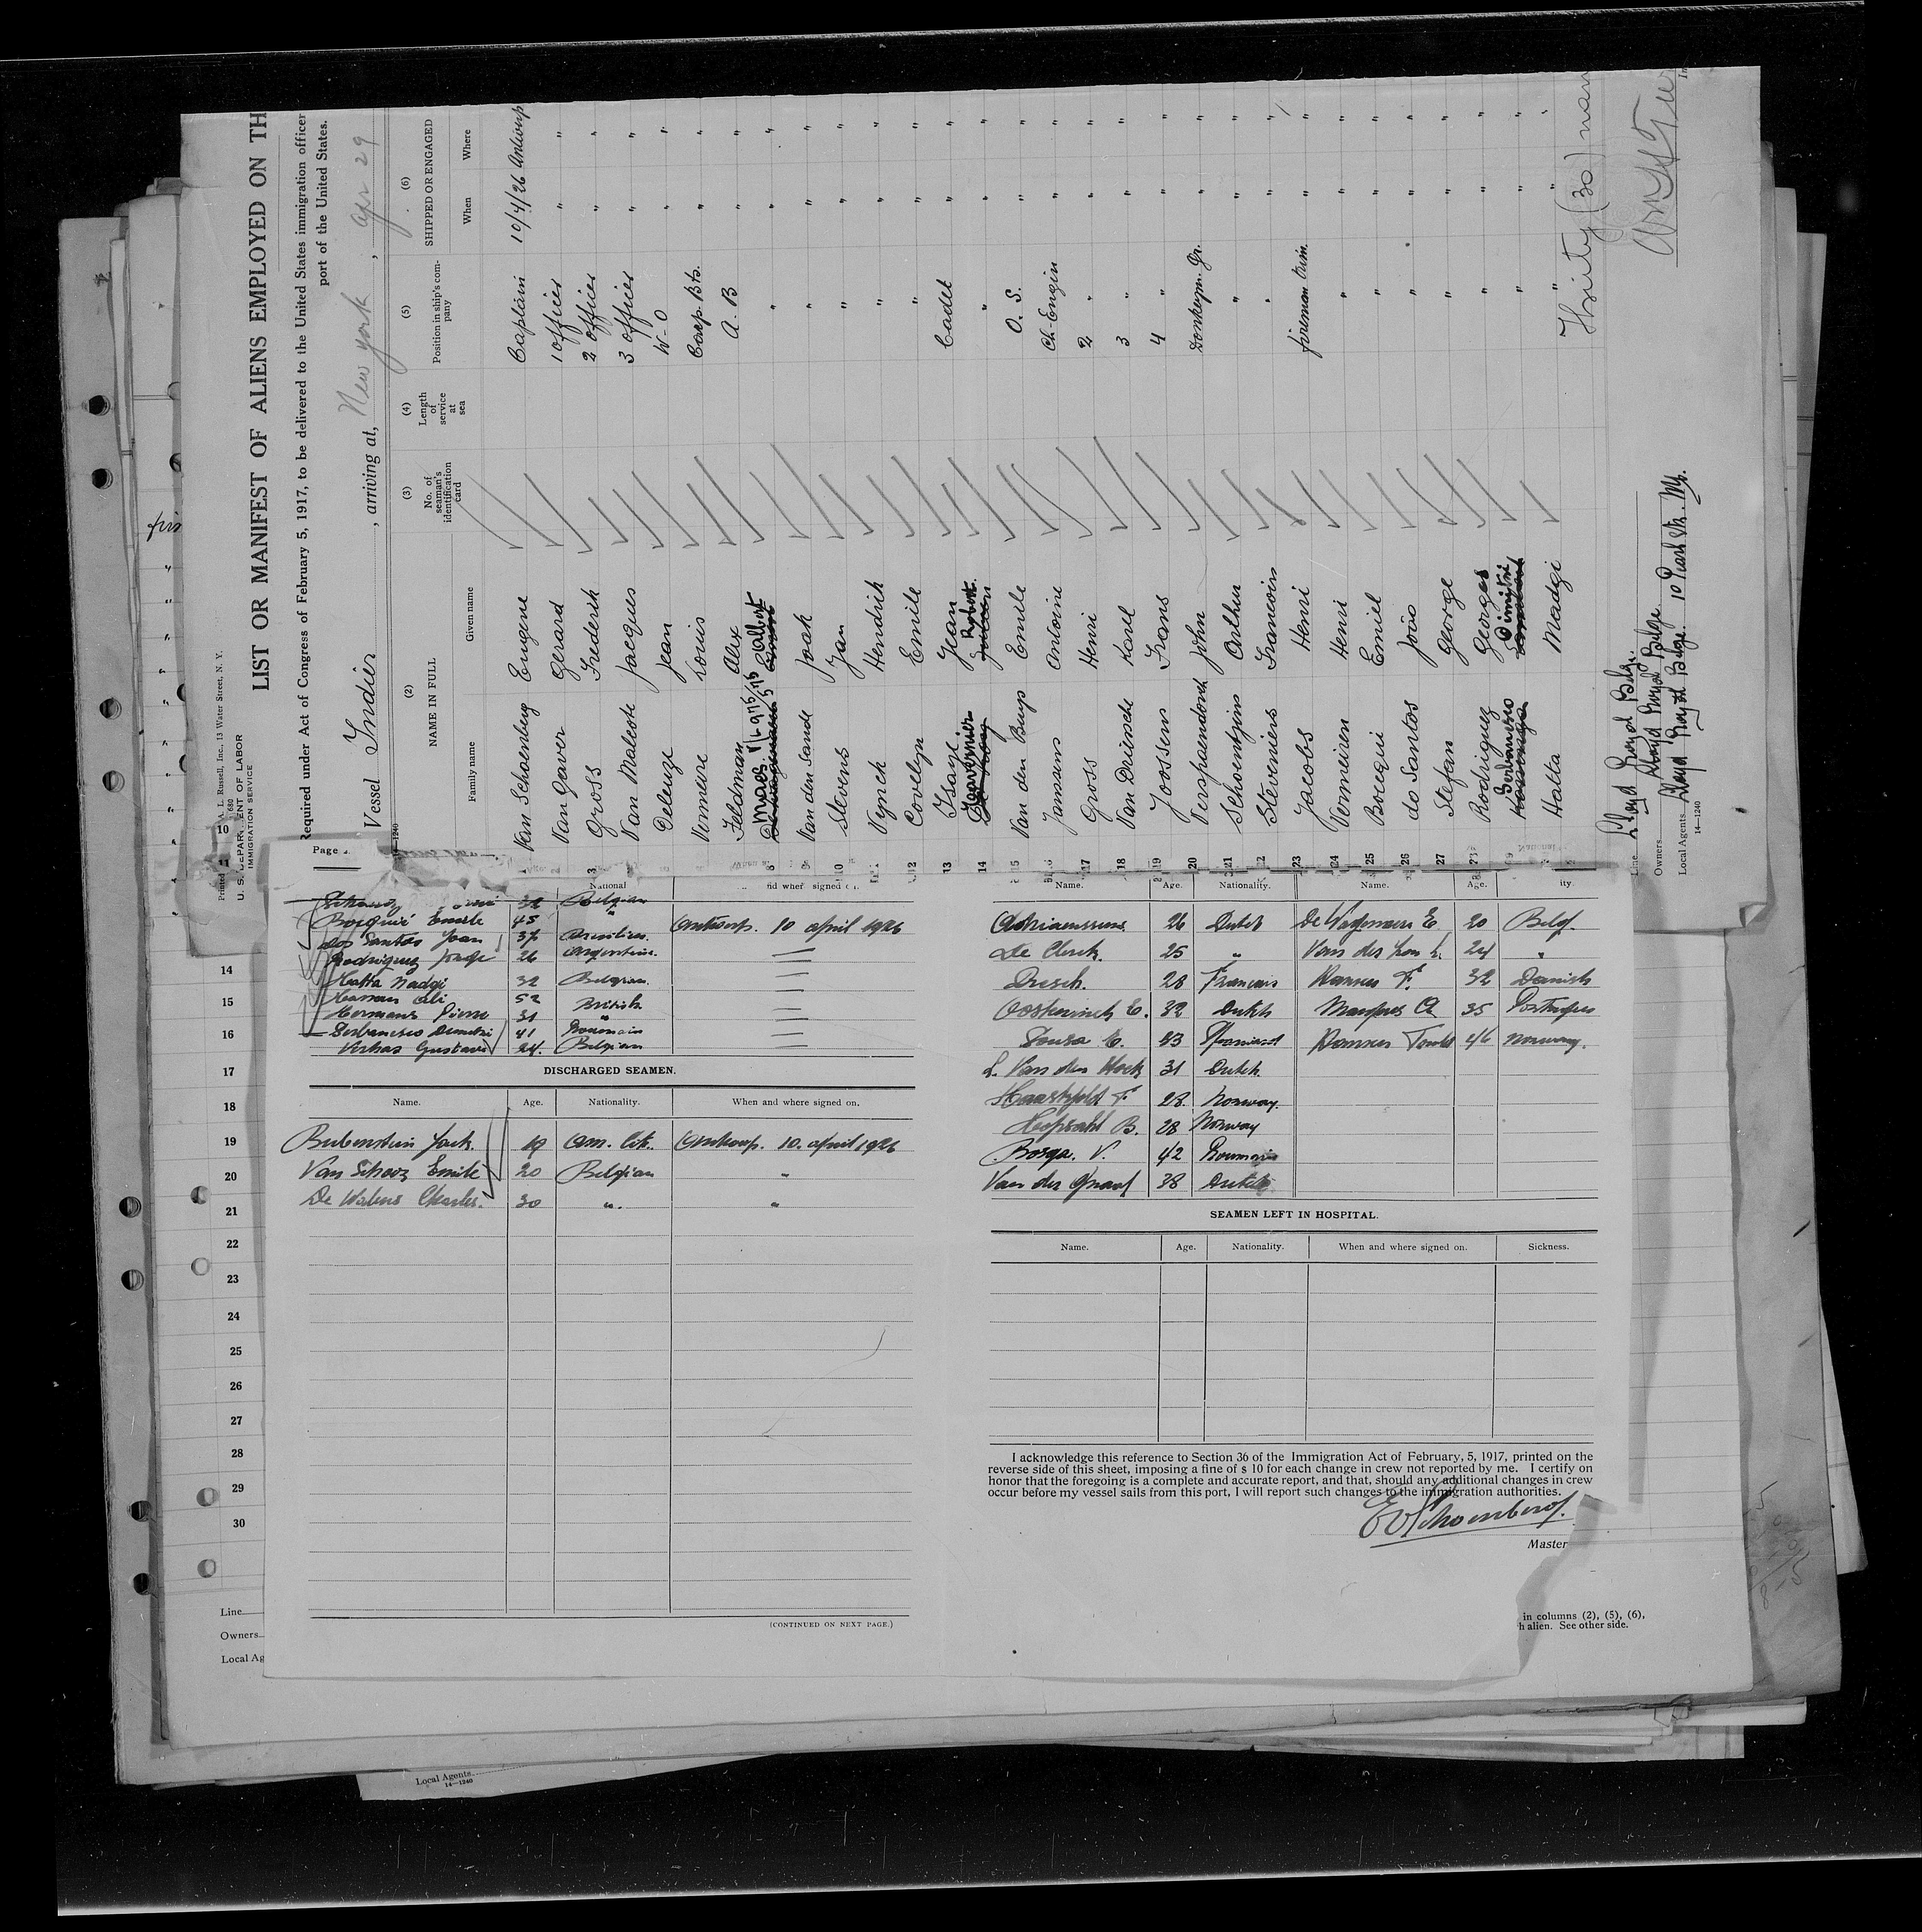 Printed A. L. Russell, Inc., 13 Water Street, N. Y.
680
U. S. DEPARTMENT OF LABOR
IMMIGRATION SERVICE
LIST OR MANIFEST OF ALIENS EMPLOYED ON TH
Required under Act of Congress of February 5, 1917, to be delivered to the United States immigration officer
port of the United States.
Vessel Indier, arriving at, New York, Apr 29
(2) (3) (4) (5) (6)
NAME IN FULL No. of seaman's identification card Length of service at sea Position in ship's company SHIPPED OR ENGAGED
Family name Given name When Where
Van Schoenberg Eugene Captain 10/4/26 Antwerp
Van Gaver Gerard 1 officer " "
3 Gross Frederik 2 officer " "
Van Malcote Jacques 3 officer " "
Deleuze Jean W-O " "
Vermeure Louis Carp. Bts. " "
Feldman Alex A. B " "
8 Maes Albert " " "
9 Van den Sande Jack " " "
10 Stevens Jan " " "
11 Vynck Hendrik " " "
12 Covelyn Emile " " "
13 Isaye Jean Cadet " "
14 Gouvernier Robert " " "
15 Van den Buys Emile O. S. " "
16 Jansens Antoine Ch-Engin " "
17 Gross Henri 2 " " "
18 Van Driessche Karel 3 " " "
19 Joossens Frans 4 " " "
20 Verspaendonck John Donkeym. Gr. " "
21 Schoentjens Arthur " " "
22 Steveniers Francois " " "
23 Jacobs Henri fireman trim. " "
24 Vermeiren Henri " " "
25 Bocqui Emiel " " "
26 do Santos João " " "
27 Stefan George " " "
Rodriguez Georges " " "
Serbanesco Dimitri " " "
Hatta Madgi " " "
Thirty (30) nam
Line Lloyd Royal Belge.
Owners Lloyd Royal Belge
Local Agents Lloyd Royal Belge. 10 Pearl Str. Ny.
14—1240
Page
National
Belgian
Bocquié Emile 45 " Antwerp. 10 april 1926
dos Santos Joan 37 Brazilian.
Rodriguez Jorge 26 Argentine.
Hatta Nadgi 32 Belgian.
Hassan Ali 52 British
Hermans Pierre 31 "
Serbanesco Demetri 41 Roumain
Verhas Gustave 24. Belgian
DISCHARGED SEAMEN.
Name. Age. Nationality. When and where signed on.
Rubenstein Jack. 19 Am. Cit. Antwerp. 10. april 1926
Van Schoor Emile 20 Belgian "
De Wabens Charles. 30 ". "
(CONTINUED ON NEXT PAGE.)
Name. Age. Nationality. Name. Age. ity.
Adriaenssens. 26 Dutch De Wagemaen E. 20 Belg.
De Clerck. 25 " 24 "
Dresch. 28 Francais Hansen F. 32 Danish
E. 32 Dutch Marques A 35 Portugees
Sousa E. 43 46 Norway.
L. Van den Hoek 31 Dutch
F. 28. Norway.
B. 28 Norway
Borga. V. 42 Roumain
Van der Graaf 38 Dutch
SEAMEN LEFT IN HOSPITAL.
Name. Age. Nationality. When and where signed on. Sickness.
I acknowledge this reference to Section 36 of the Immigration Act of February, 5, 1917, printed on the
reverse side of this sheet, imposing a fine of $ 10 for each change in crew not reported by me. I certify on
honor that the foregoing is a complete and accurate report, and that, should any additional changes in crew
occur before my vessel sails from this port, I will report such changes to the immigration authorities.
EvSchoenberg.
Master
in columns (2), (5), (6),
h alien. See other side.
10
11
14
15
16
17
18
19
20
21
22
23
24
25
26
27
28
29
30
Line
Owners
Local Ag
Local Agents
14—1240